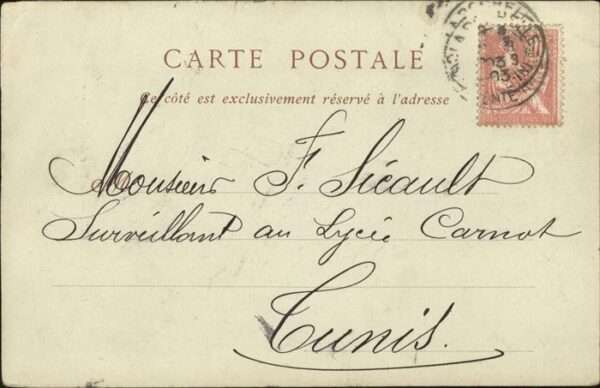 CARTE POSTALE
Ce côté est exclusivement réservé à l'adresse
Monsieur F. Sicault
Surveillant au Lycée Carnot
Tunis.